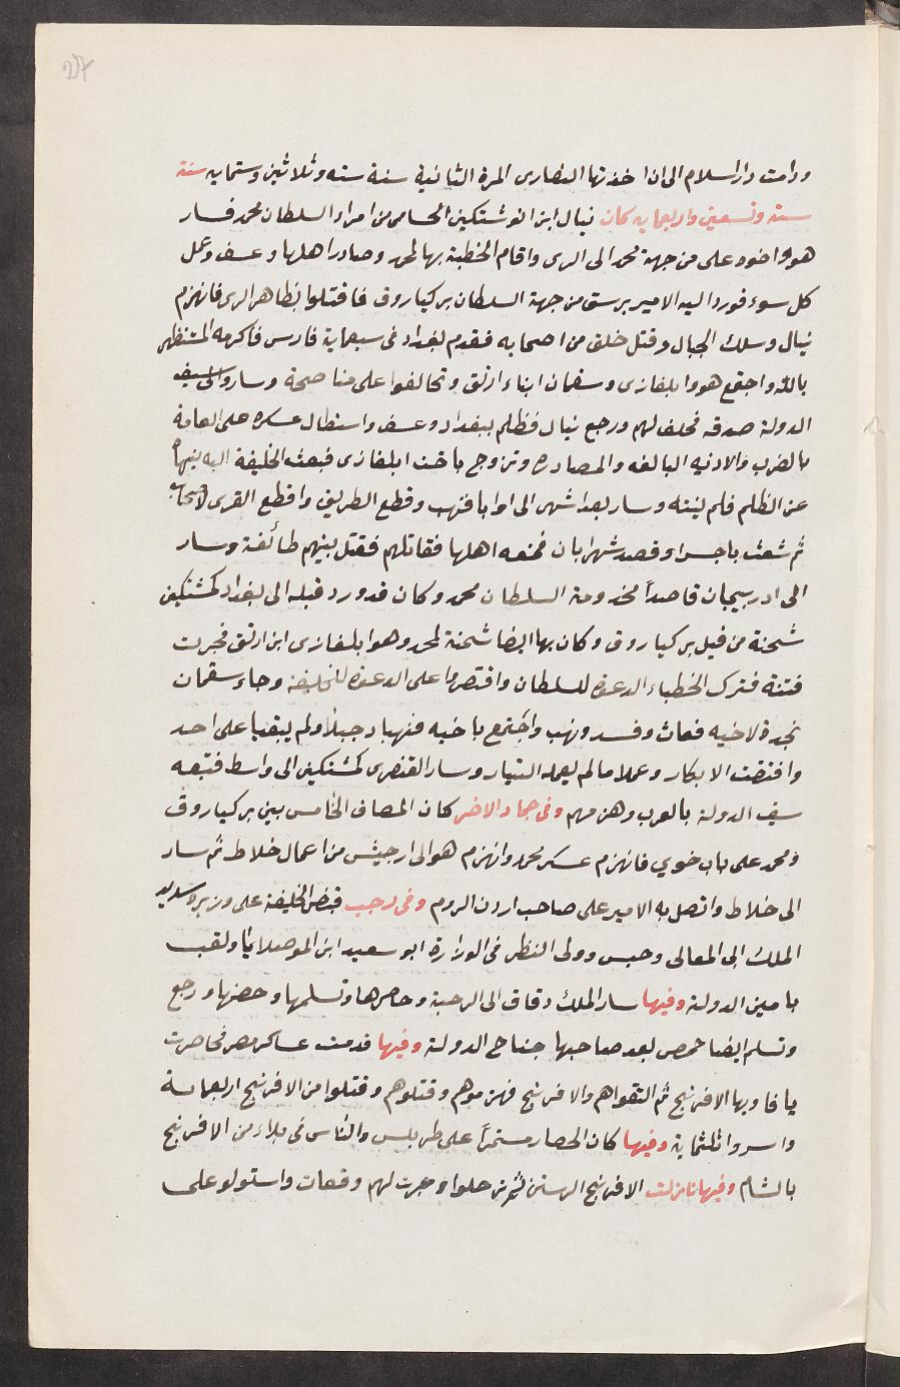 237
ودامت دار اسلام الى ان اخذتها النصارى المرة الثانية سنة سته وثلاثين وستمايه سنة
ستة وتسعين واربعمايه كان نيال ابن انوشتكين الحسامى من امراء السلطان محمد فسار
هو واخوه على من جهة محمد الى الرى واقام الخطبة بها لمحمد وصادر اهلها وعسف وعمل
كل سوء فورد اليه الامير برسق من جهة السلطان بركياروق فاقتلوا بظاهر الرى فانهزم
نيال وسلك الجبال وقتل خلق من اصحابه فقدم بغداد فى سبعماية فارس فاكرمه المستظهر
بالله واجتمع هو وايلغازى وسقمان ابناء ارتق وتحالفوا على مناصحة وساروا الى سيف
الدولة صدقه فحلف لهم ورجع نيال فظلم ببغداد وعسف واستطال عسكره على العامة
بالضرب والاذيه البالغه والمصادره وتزوج باخت ايلغازى فبعث الخليفة اليه ينهاه
عن الظلم فلم ينته وسار بعد اشهر الى اوانا فنهب وقطع الطريق واقطع القرى لاصحابه
ثم شعث باجسرا وقصد شهرابان فمنعه اهلها فقاتلهم فقتل بينهم طائفة وسار
الى ادربيجان قاصداً مخدومه السلطان محمد وكان قد ورد قبله الى بغداد كمشتكين
شحنة من قبل بركياروق وكان بها ايضا شحنة لمحمد وهو ايلغازى ابن ارتق فجرت
فتنة فترك الخطباء الدعوة للسلطان واقتصروا على الدعوة للخليفة وجاء سقمان
نجدة لاخيه فعاث وفسد ونهب واجتمع باخيه فنهبا دجيلا ولم يبقيا على احد
وافتضت الابكار وعملا ما لم يعمله التتار وسار القيصرى كمشتكين الى واسط فتبعه
سيف الدولة بالعرب وهزمهم وفى جماد الاخر كان المصاف الخامس بين بركياروق
ومحمد على باب خوي فانهزم عسكر محمد وانهزم هو الى ارجيش من اعمال خلاط ثم سار
الى خلاط واتصل به الامير على صاحب ارزن الروم وفى رجب قبض الخليفة على وزيره سديد
الملك ابى المعالى وحبس وولى النظر فى الوزارة ابو سعيد ابن الموصلايا ولقب
بامين الدولة وفيها سار الملك دقاق الى الرحبة وحاصرها وتسلمها وحصنها ورجع
وتسلم ايضا حمص بعد صاحبها جناح الدولة وفيها قدمت عساكر مصر فحاصرت
يافا وبها الافرنج ثم التقوا هم والافرنج فهزموهم وقتلوهم وقتلوا من الافرنج اربعماية
واسروا ثلثماية وفيها كان الحصار مستمراً على طربلس والناس فى بلاء من الافرنج
بالشام وفيها نازلت الافرنج الرستن ثم ترحلوا وجرت لهم وقعات واستولو على